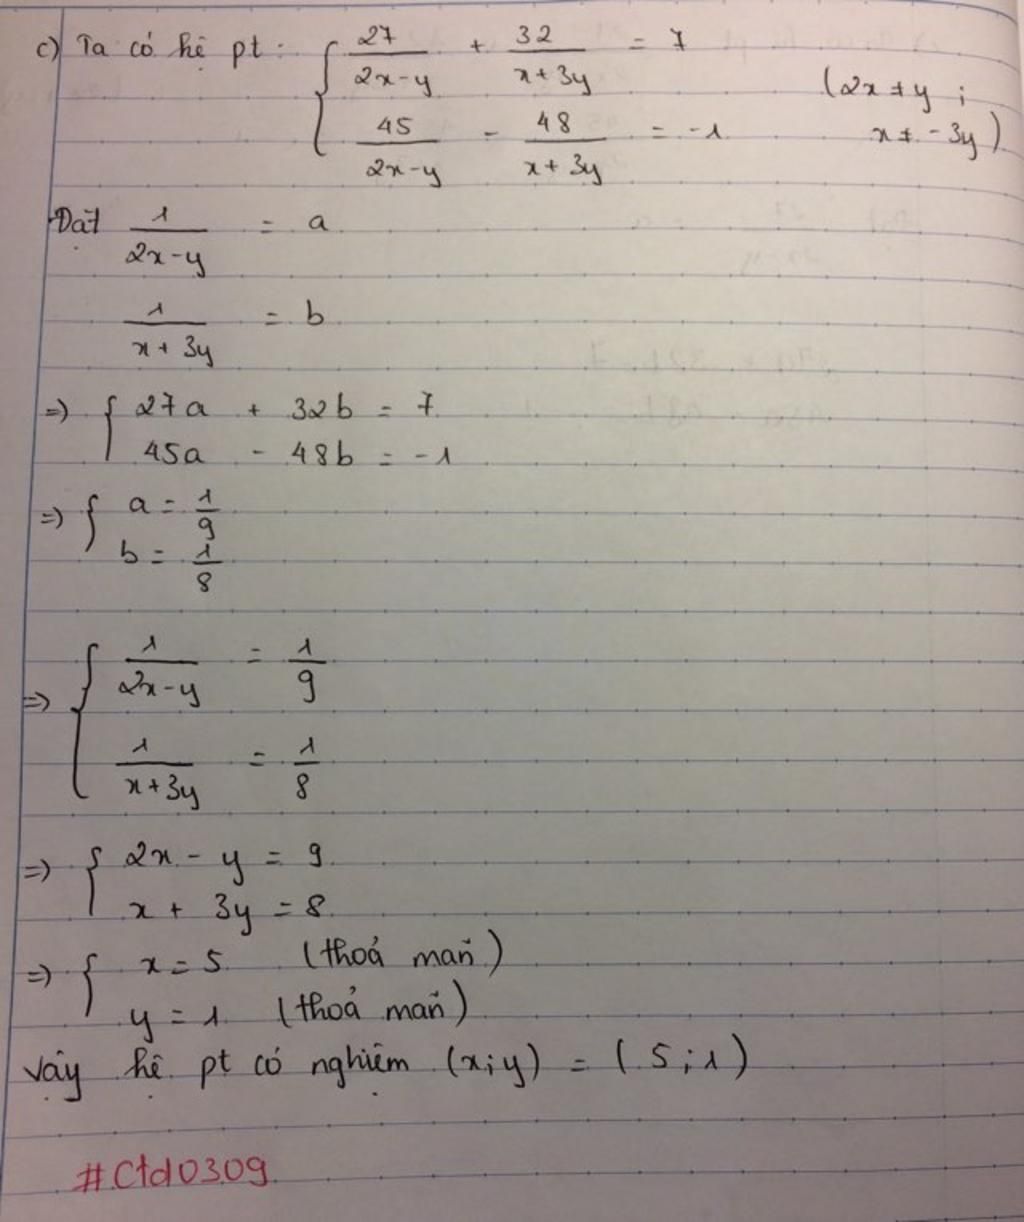 c) Ta có hệ pt: { 27/(2x-y) + 32/(x+3y) = 7
45/(2x-y) - 48/(x+3y) = -1
(2x ≠ y ;
x ≠ -3y)
Đặt 1/(2x-y) = a
1/(x+3y) = b
=> { 27a + 32b = 7
45a - 48b = -1
=> { a = 1/9
b = 1/8
=> { 1/(2x-y) = 1/9
1/(x+3y) = 1/8
=> { 2x - y = 9
x + 3y = 8
=> { x = 5 (thoả mãn)
y = 1 (thoả mãn)
Vậy hệ pt có nghiệm (x;y) = (5;1)
#Ctd0309